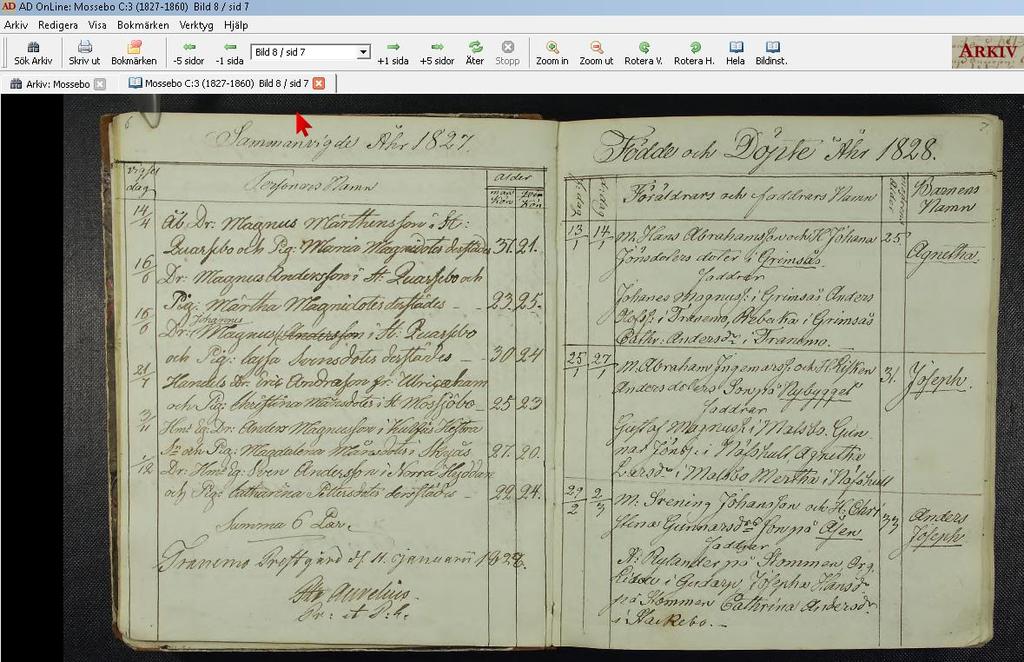 AD OnLine: Mossebo C:3 (1827-1860) Bild 8 / sid 7
Arkiv Redigera Visa Bokmärken Verktyg Hjälp
Sök Arkiv Skriv ut Bokmärken -5 sidor -1 sida Bild 8 / sid 7 +1 sida +5 sidor Åter Stopp Zoom in Zoom ut Rotera V. Rotera H. Hela Bildinst.
ARKIV
Arkiv: Mossebo Mossebo C:3 (1827-1860) Bild 8 / sid 7
6
Sammanvigde Åhr 1827.
vigsel dag Personers Namn ålder
man kön qvin kön
14/4 Ab. Dr. Magnus Märthensson i St:
Quarsebo och Pig: Maria Magnidotter derstädes 31. 21.
16/6 Dr: Magnus Andersson i St. Quarsebo och
Pig: Märtha Magnidotter derstädes 23. 25.
16/6 Johannes
Dr: Magnus Andersson i St: Quarsebo
och Pig: Cajsa Svensdotter derstädes 30 24
21/7 Handels Dr. Eric Andrason fr: Ulricæham
och Pig: Christina Månsdotter i St Mossebo 25 23
Dr: Anders Magnusson i
och Pig: Magdalena Månsdotter i 27. 20.
1/12 Dr: Sven Andersson i Norra
och Pig: Catharina Pettersdotter derstädes 22. 24.
Summa 6 Par.
Tranemo Prestgård d. 11 Januarii 1828.
Aurelius.
Pr: et P:l.
7
Födde och Döpte Åhr 1828.
Föräldrars och faddrars Namn Barnens Namn
13/1 14/1 M. Hans Abrahamsson och H. Johana 25 Agnetha.
Jönsdoters doter i Grimsås
faddrar
Johanes Magnus: i Grimsås Anders
i Tranemo, Rebecka i Grimsås
Cathr: Andersdr i Tranemo.
25/1 27/1 M. Abraham Ingemarss: och H. 31. Joseph.
Andersdoters Son på Nybygget
faddrar
Gustaf Magnus: i Malsbo. Gun
nar Jönss: i Håfshult Agnetha
Larsdr i Malsbo Mertha i Håfshult
29/2 2/3 M. Johansson och H. Chri 33 Anders Joseph
stina Gunnarsdr Son på Åsen
faddrar
N: Rylander på Kommen, Org.
i Gudarp, Josepha Hansdr
på Kommen Cathrina Andersdr
i Hackebo.